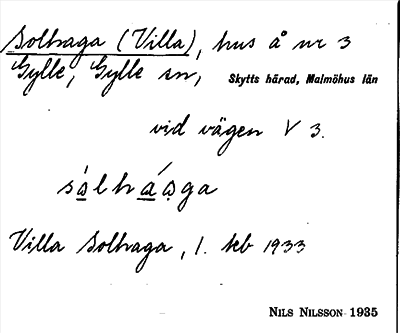 Solhaga (Villa), hus å nr 3
Gylle, Gylle sn, Skytts härad, Malmöhus län
vid vägen V 3.
Villa Solhaga, 1. teb 1933
NILS NILSSON 1935